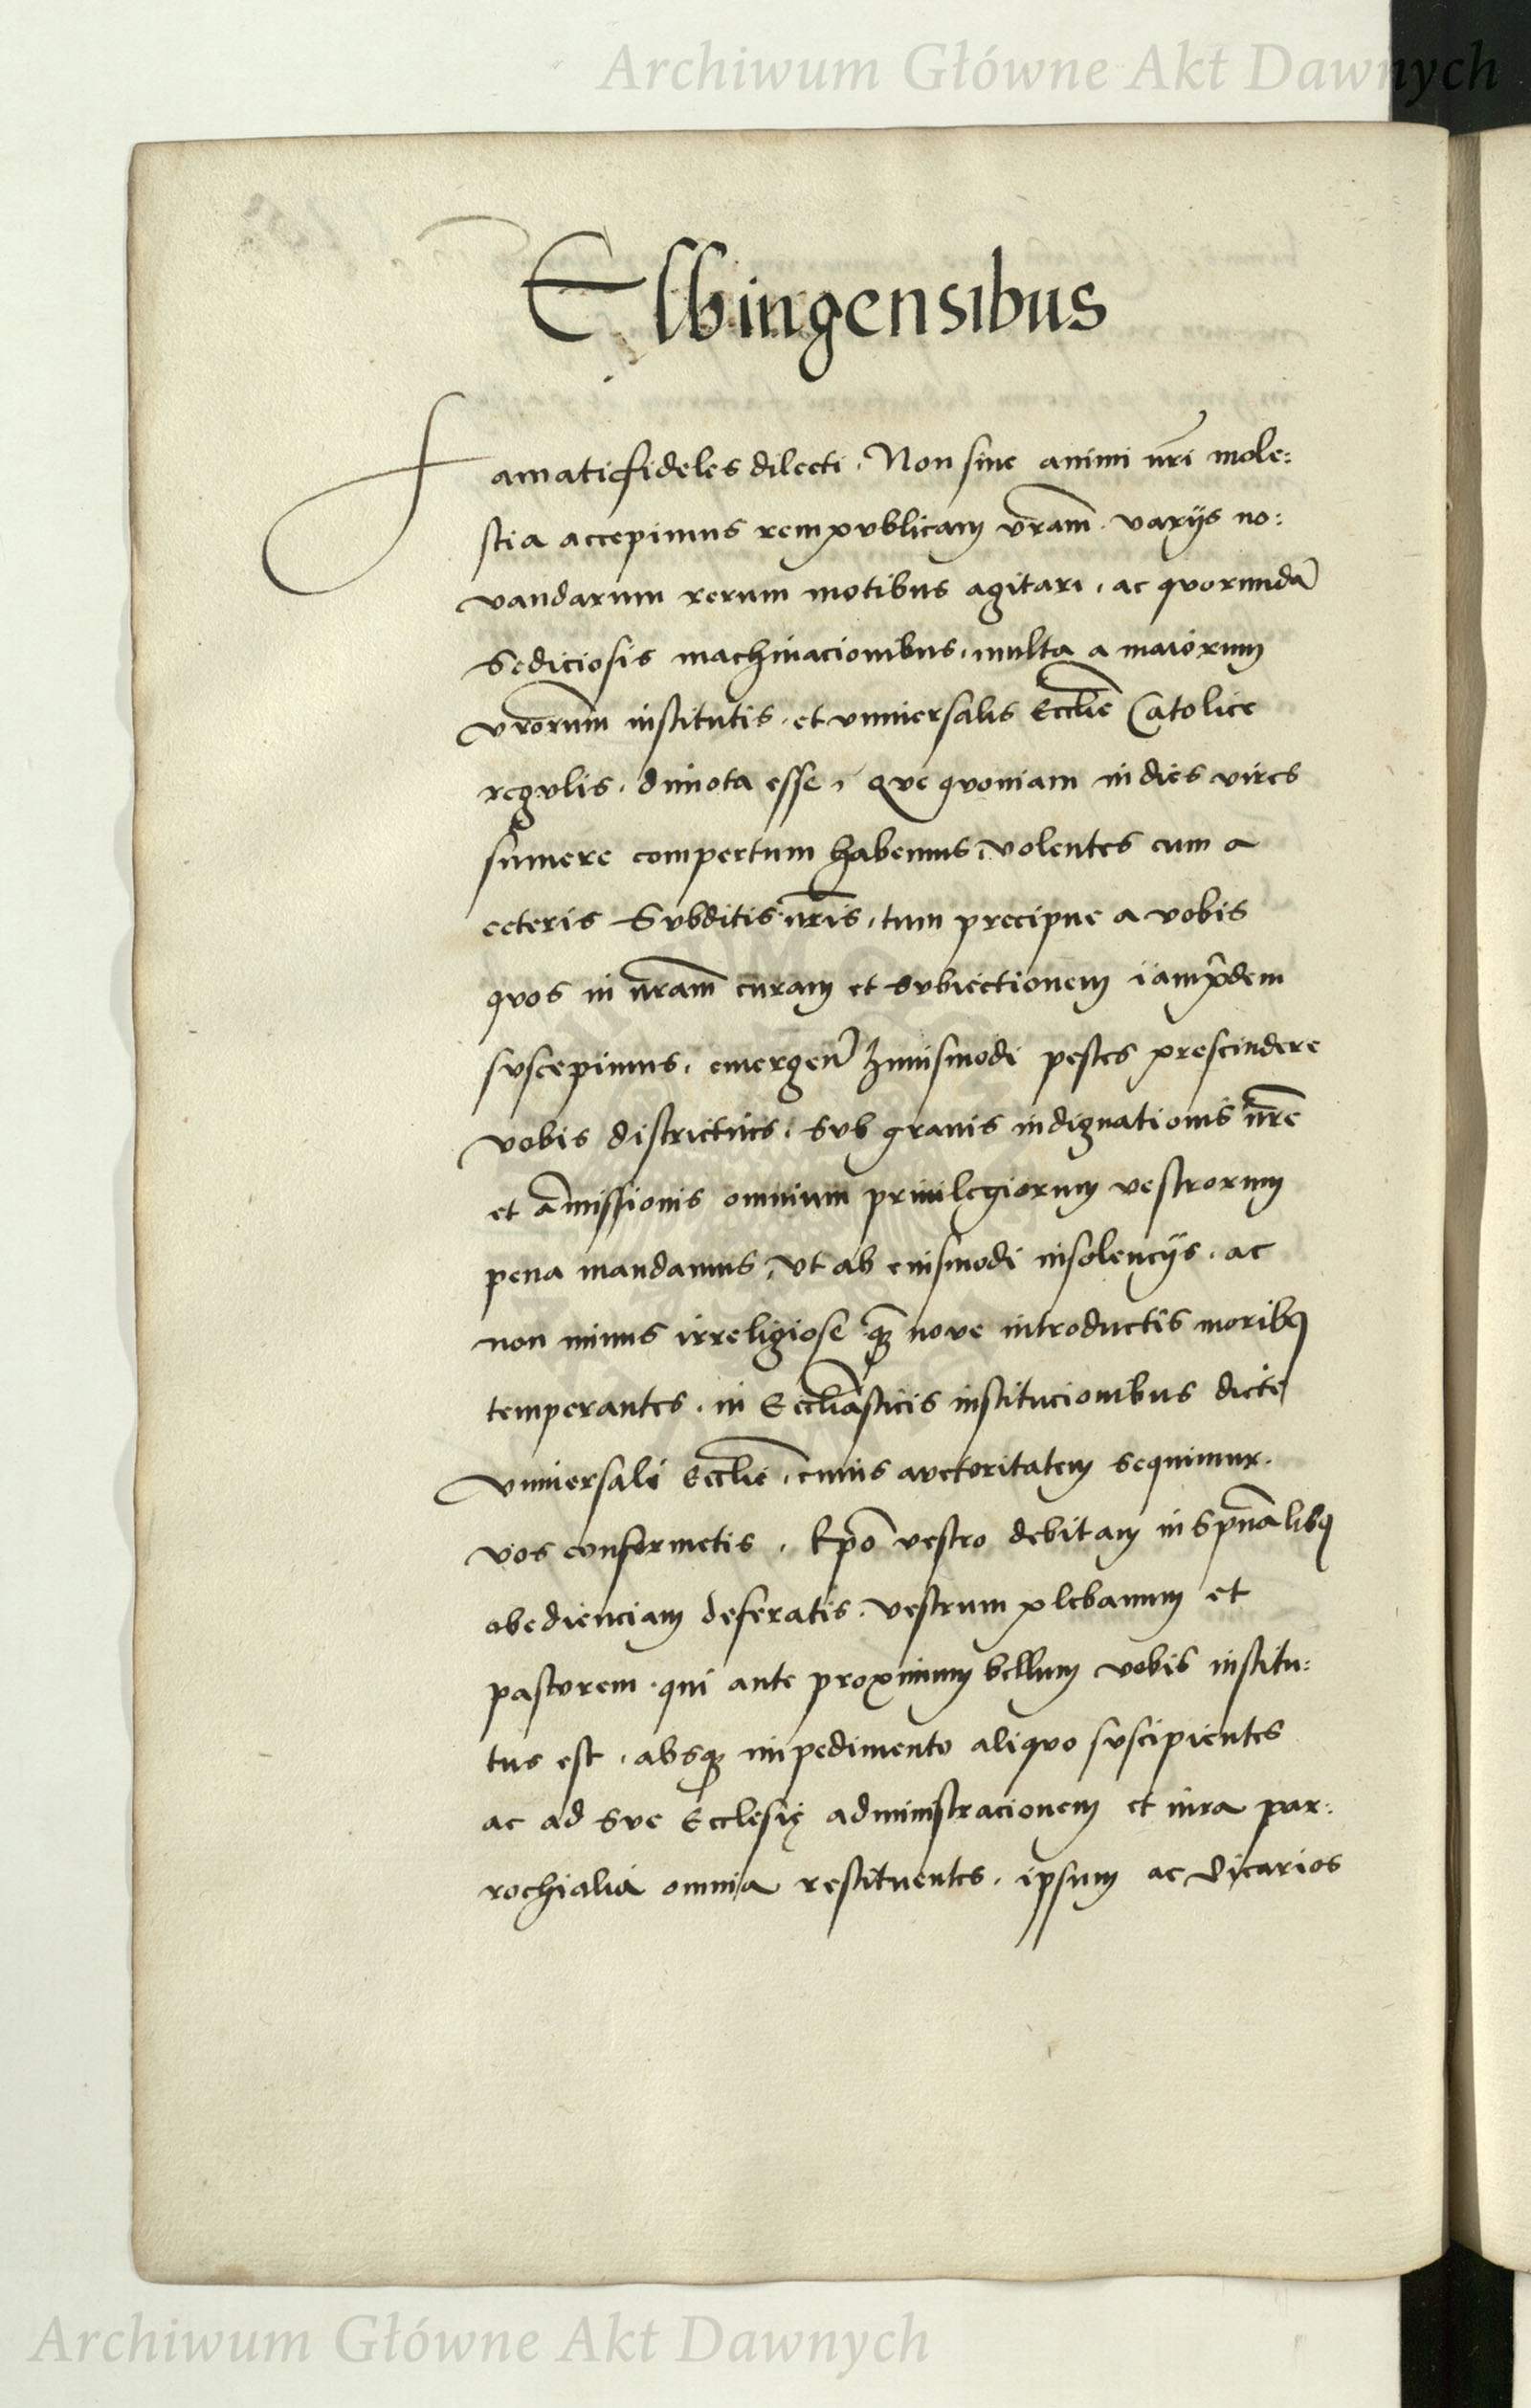 Archiwum Główne Akt Dawnych
Elbingensibus
Famati fideles dilecti. Non sine animi nr̃i mole:
stia accepimus rempublicam vr̃am varijs no:
vandarum rerum motibus agitari, ac quorundā
Sediciosis machinacionibus, multa a maiorum
vr̃orum institutis et vniuersalis Eccl̃ie Catolice
regulis, dimota esse, que quoniam in dies vires
sumere compertum habemus, volentes cum a
ceteris Subditis nr̃is, tum precipue a vobis
quos in nr̃am curam et subiectionem iamp̃dem
suscepimus, emergen̄ huiusmodi pestes prescindere
vobis districtius, sub grauis indignationis nr̃e
et amissionis omnium priuilegiorum vestrorum
pena mandamus, vt ab eiusmodi insolencijs, ac
non minus irreligiose q̃ꝫ noue introductis moribꝰ
temperantes, in Eccl̃iasticis institucionibus dicte
vniuersali Eccl̃ie, cuius auctoritatem sequimur.
vos conformetis, Ep̃o vestro debitam in Sp̃ualibꝰ
obedienciam deferatis, vestrum plebanum et
pastorem qui ante proximum bellum vobis institu:
tus est, absqꝫ impedimento aliquo suscipientes
ac ad sue Ecclesię administracionem et iura par:
rochialia omnia restituentes, ipsum ac Vicarios
Archiwum Główne Akt Dawnych